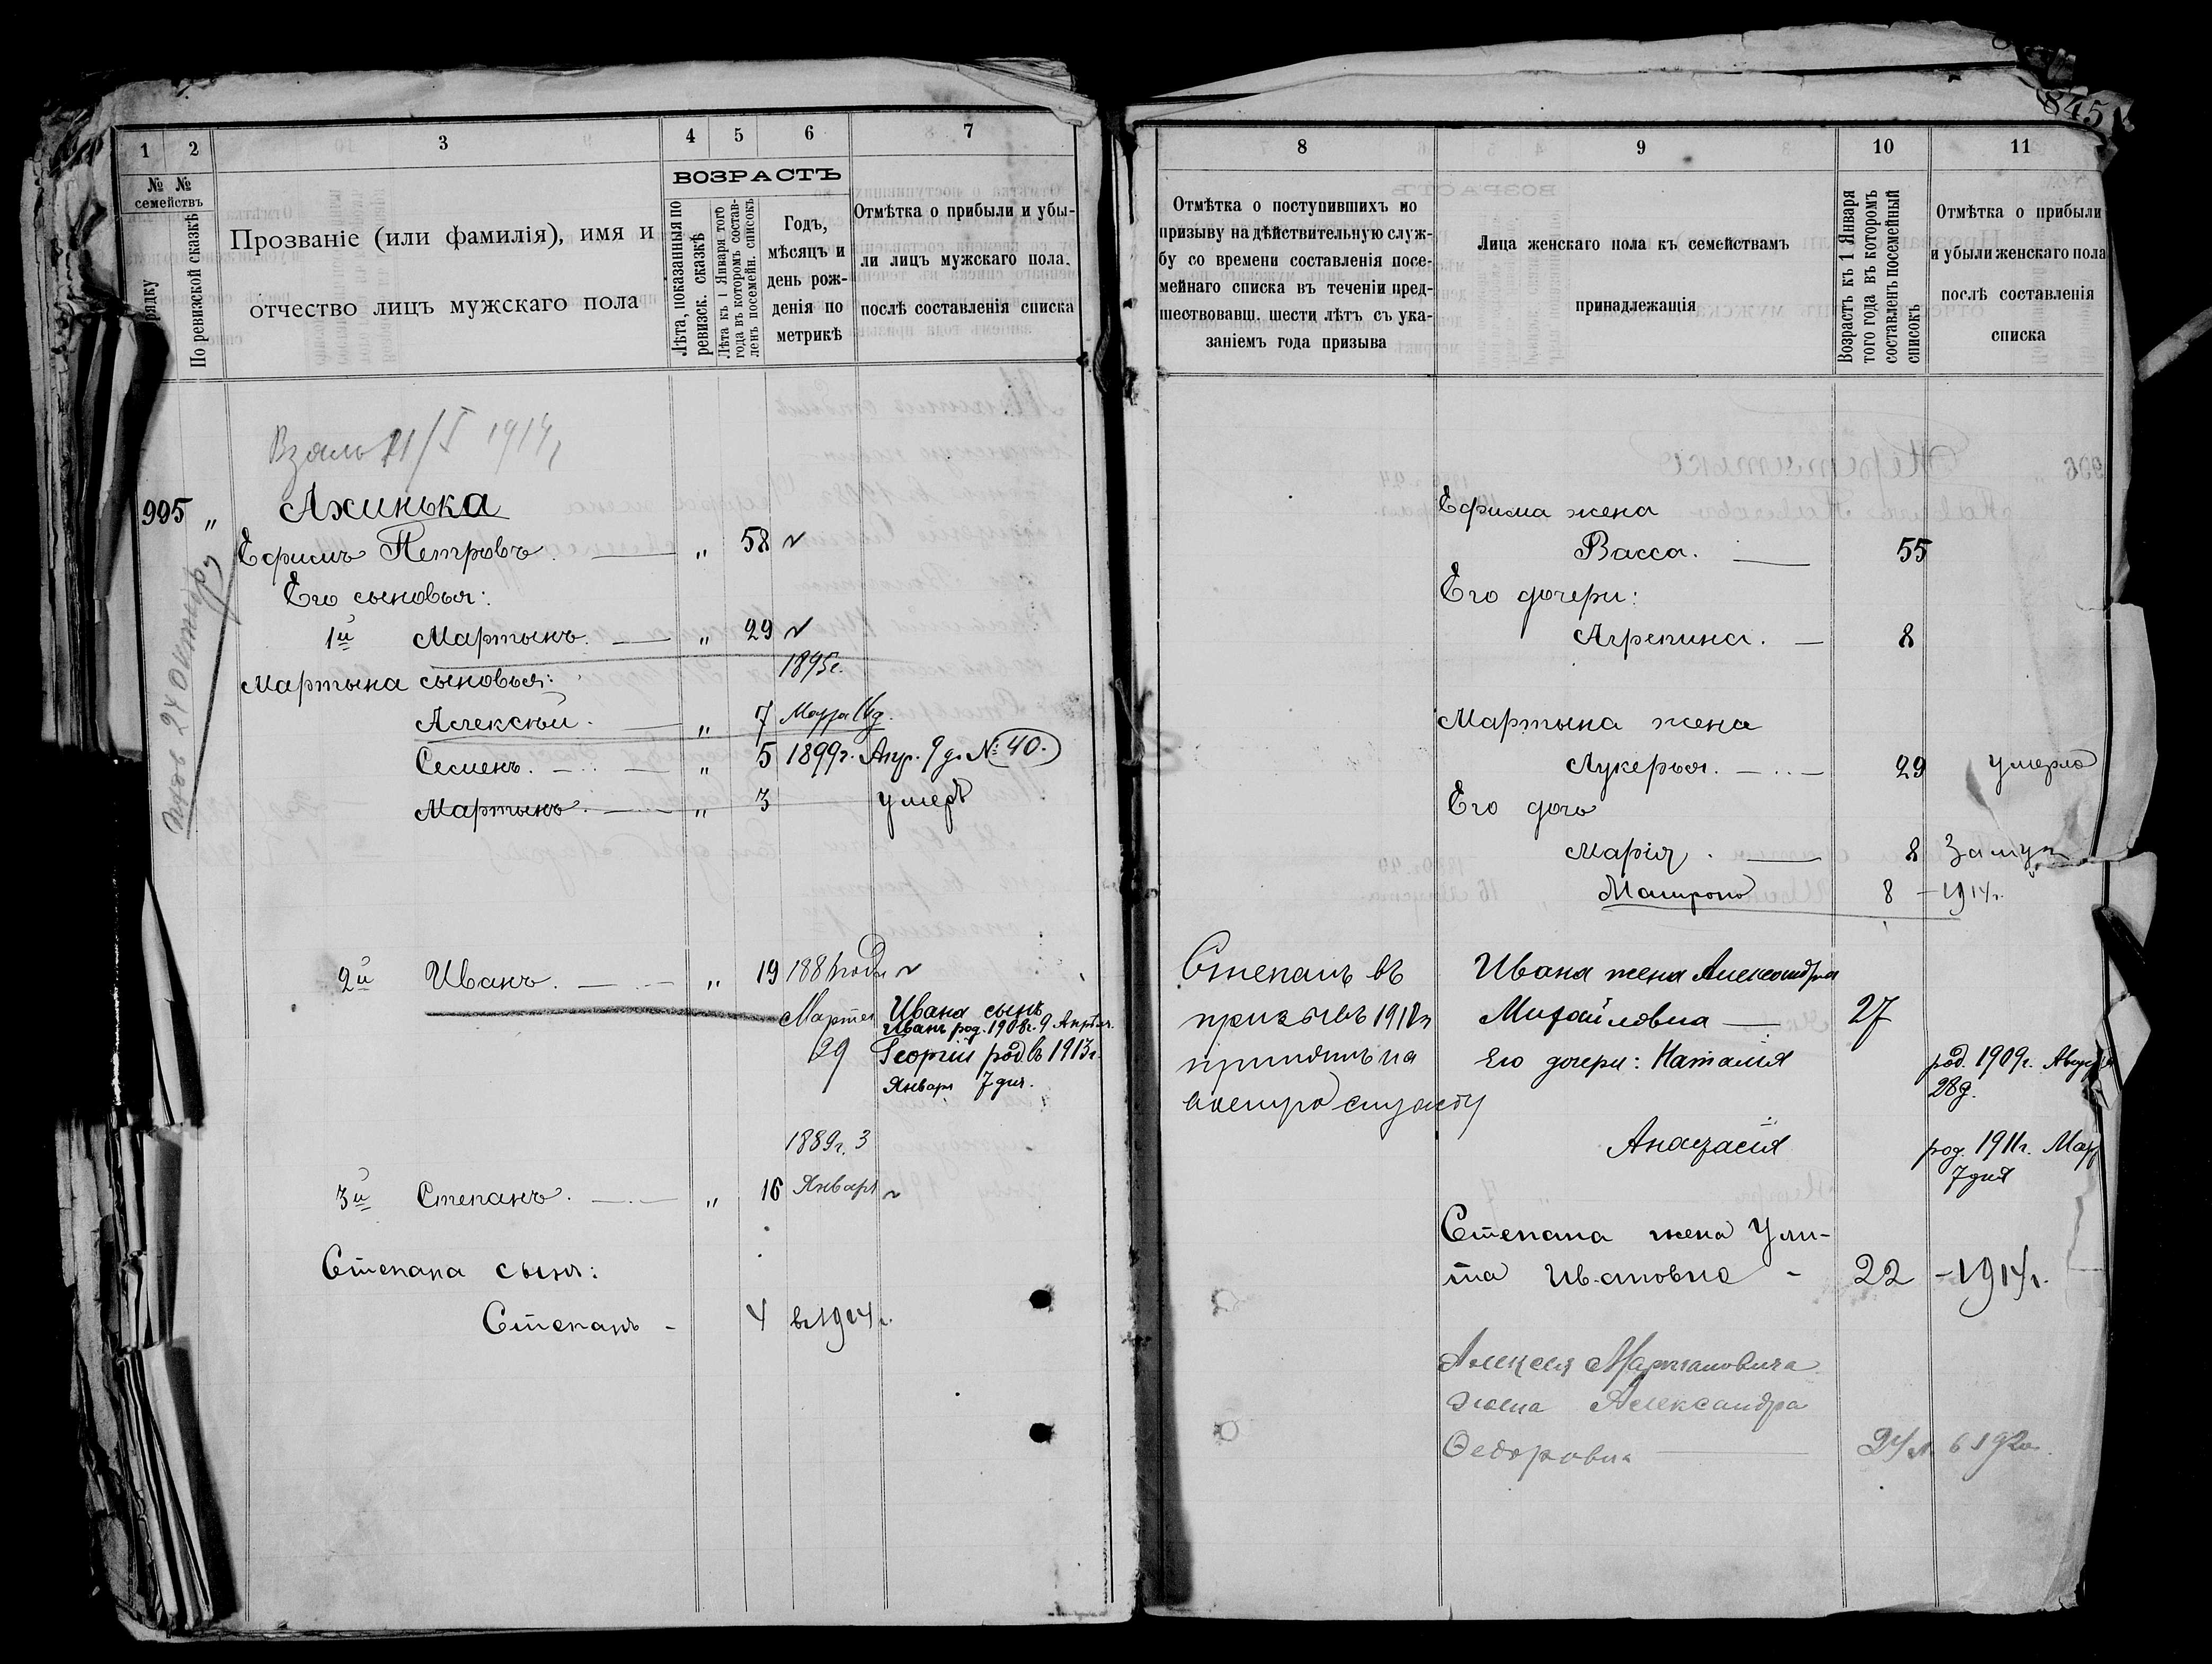 845
1 2 3 4 5 6 7
№ № семействъ
рядку
По ревизской сказкѣ
Прозваніе (или фамилія), имя и
отчество лицъ мужскаго пола
ВОЗРАСТЪ
Лѣта, показанныя по
ревизск. сказкѣ
Лѣта къ 1 Января того
года въ которомъ состав-
ленъ посемейн. списокъ
Годъ,
мѣсяцъ и
день рож-
денія по
метрикѣ
Отмѣтка о прибыли и убы-
ли лицъ мужскаго пола,
послѣ составленія списка
Взялъ 21/I 1914,
995 „ Ахинька
Ефимъ Петровъ. — „ 58
Его сыновья:
1й Мартынъ. — „ 29
1895г.
Мартына сыновья:
Алексѣй. — „ 7
Семенъ. — „ 5 1899г. Апр. 9 д. № 40.
Мартынъ. — „ 3 умеръ
24 Октяб
2й Иванъ. — „ 19
Марта
29
Ивана сынъ
Иванъ род. 1908г. 9 Апрѣля.
Георгій род. въ 1913г.
Января 7 дня.
1889г. 3
3й Степанъ. — „ 16 Января
Степана сынъ:
Степанъ - 4
8 9 10 11
Отмѣтка о поступившихъ по
призыву на дѣйствительную служ-
бу со времени составленія посе-
мейнаго списка въ теченіи пред-
шествовавш. шести лѣтъ съ ука-
заніемъ года призыва
Лица женскаго пола къ семействамъ
принадлежащія
Возрастъ къ 1 Января
того года въ которомъ
составленъ посемейный
списокъ
Отмѣтка о прибыли
и убыли женскаго пола
послѣ составленія
списка
Ефима жена
Васса. — 55
Его дочери:
Агрепина. — 8
Мартына жена
Лукерья. — 29 умерла
Его дочь
Марія. — 8 Замуж
8 - 1914г.
Степанъ въ
призывъ
принятъ на
военную службу
Ивана жена Александра
Михайловна — 27
Его дочери: Наталія род. 1909г. Августа
28д.
Анастасія род. 1911г. Мар
7 дня
Степана жена Ули-
та Ивановна - 22 - 1914г.
Алексея Мартиановича
жена Александра
Федоровна —